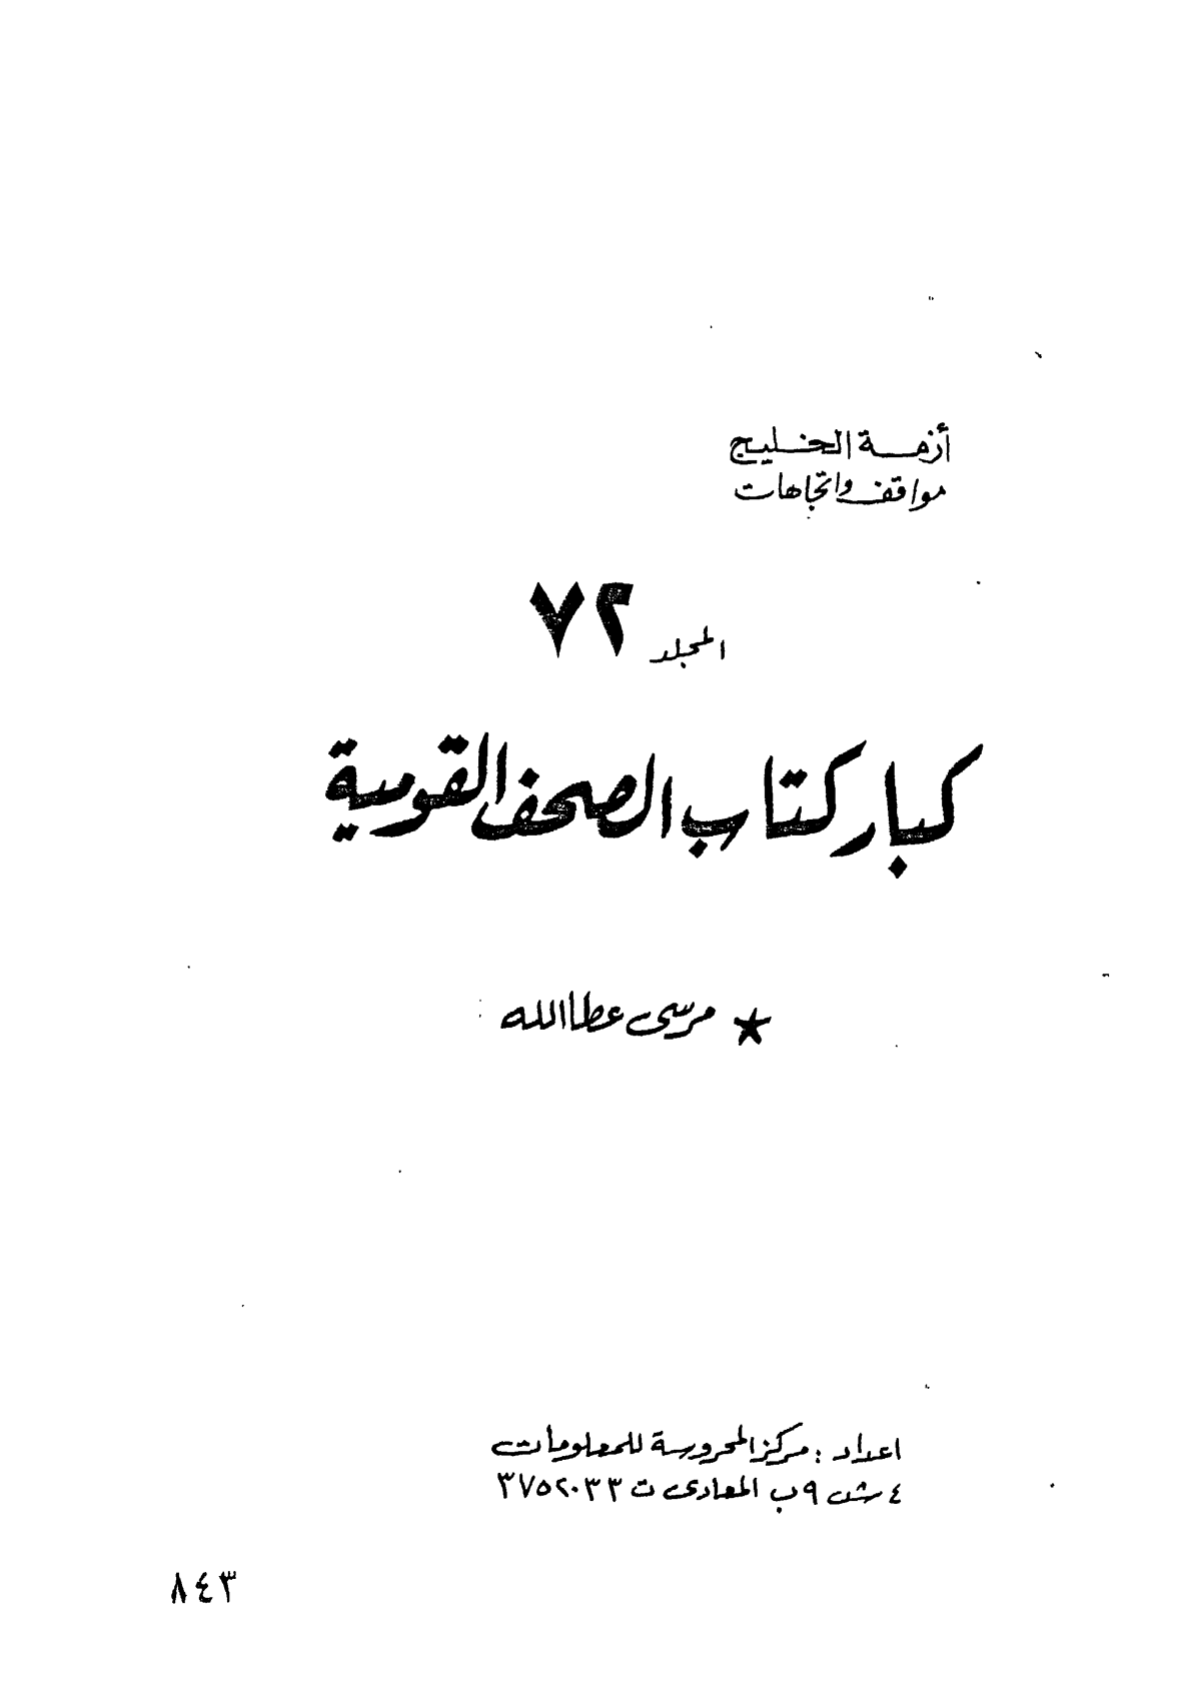 أزمة الخليج
مواقف واتجاهات
المجلد ٧٢
كبار كتاب الصحف القومية
★ مرسى عطا الله
اعداد : مركز المحروسة للمعلومات
٤ ش ٩ ب المعادى ت ٣٧٥٢٠٣٣
٨٤٣